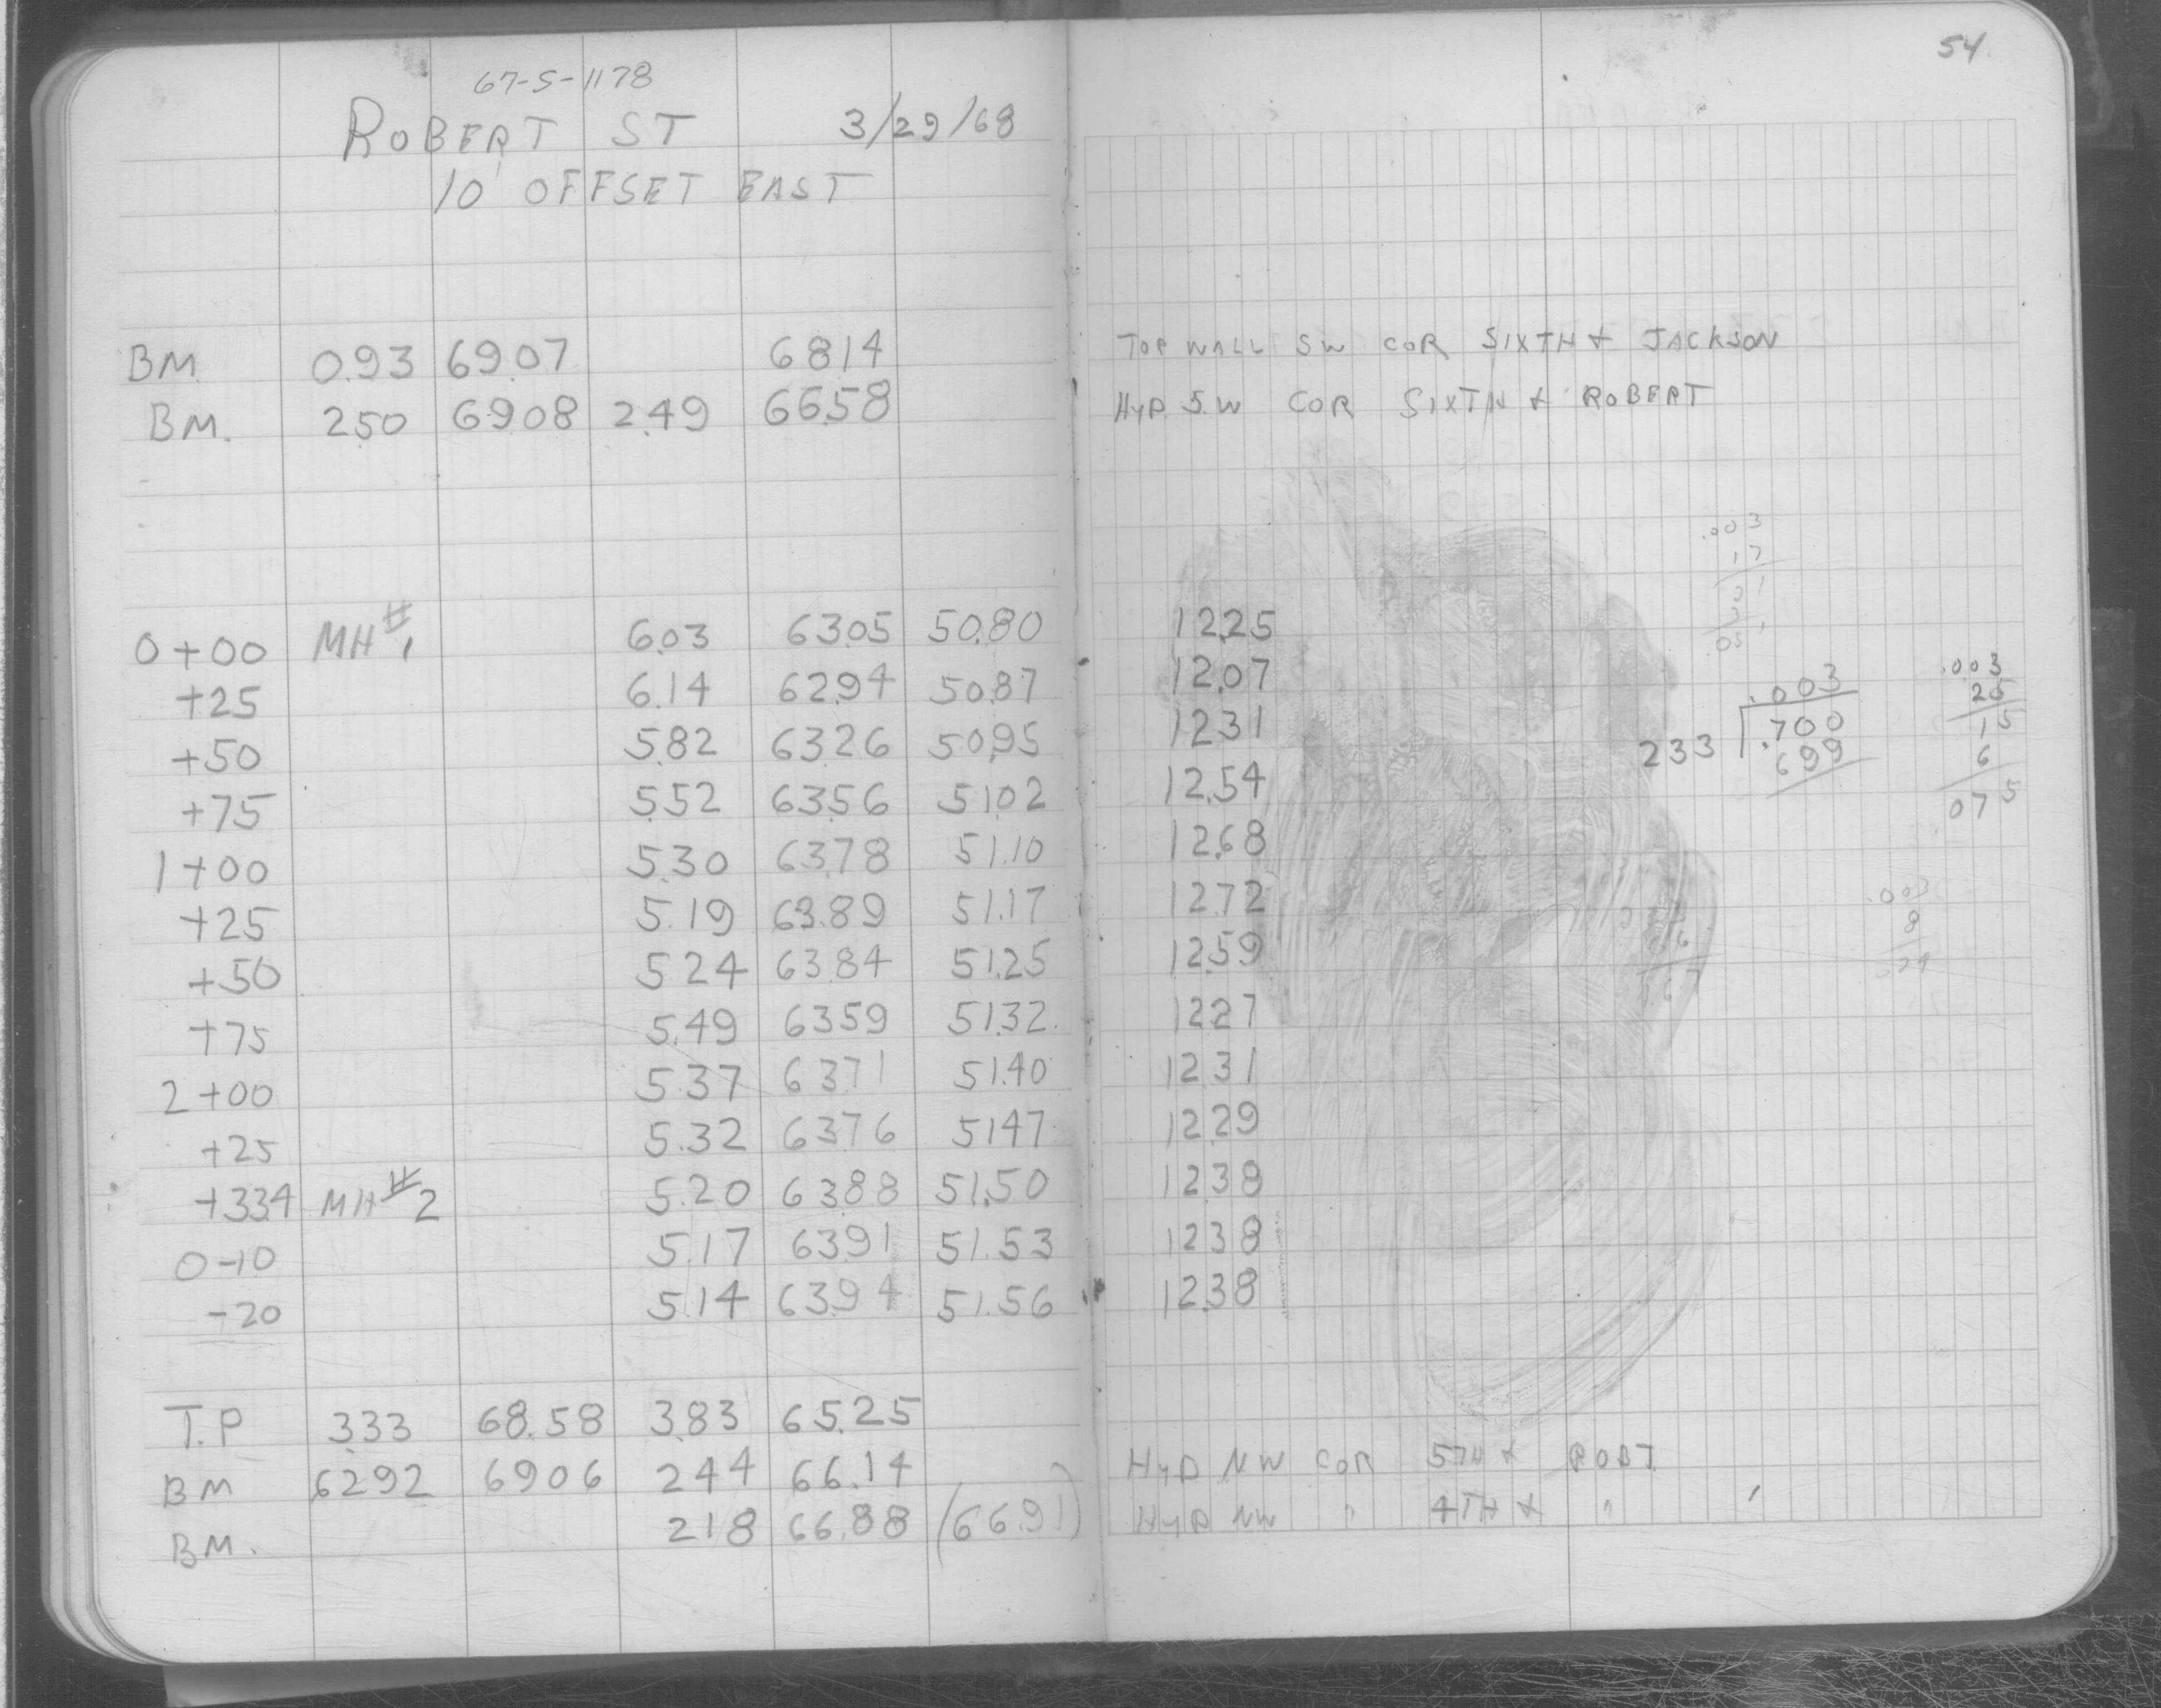 54
67-S-1178
ROBERT ST 3/29/68
10' OFFSET EAST
BM. 0.93 69.07 68.14 TOP WALL SW COR SIXTH & JACKSON
BM. 2.50 69.08 2.49 66.58 HYD. S.W COR SIXTH & ROBERT
0+00 MH #1 6.03 63.05 50.80 12.25
+25 6.14 62.94 50.87 12.07
+50 5.82 63.26 50.95 12.31
+75 5.52 63.56 51.02 12.54
1+00 5.30 63.78 51.10 12.68
+25 5.19 63.89 51.17 12.72
+50 5.24 63.84 51.25 12.59
+75 5.49 63.59 51.32 12.27
2+00 5.37 63.71 51.40 12.31
+25 5.32 63.76 51.47 12.29
+33.4 MH #2 5.20 63.88 51.50 12.38
0-10 5.17 63.91 51.53 12.38
-20 5.14 63.94 51.56 12.38
T.P 3.33 68.58 3.83 65.25
BM 6292 69.06 2.44 66.14 HYD NW COR 5TH & ROBT.
BM. 2.18 66.88 (66.91) HYD NW " 4TH & "
.003
17
.003
233 .700
699
.003
25
15
6
075
.003
8